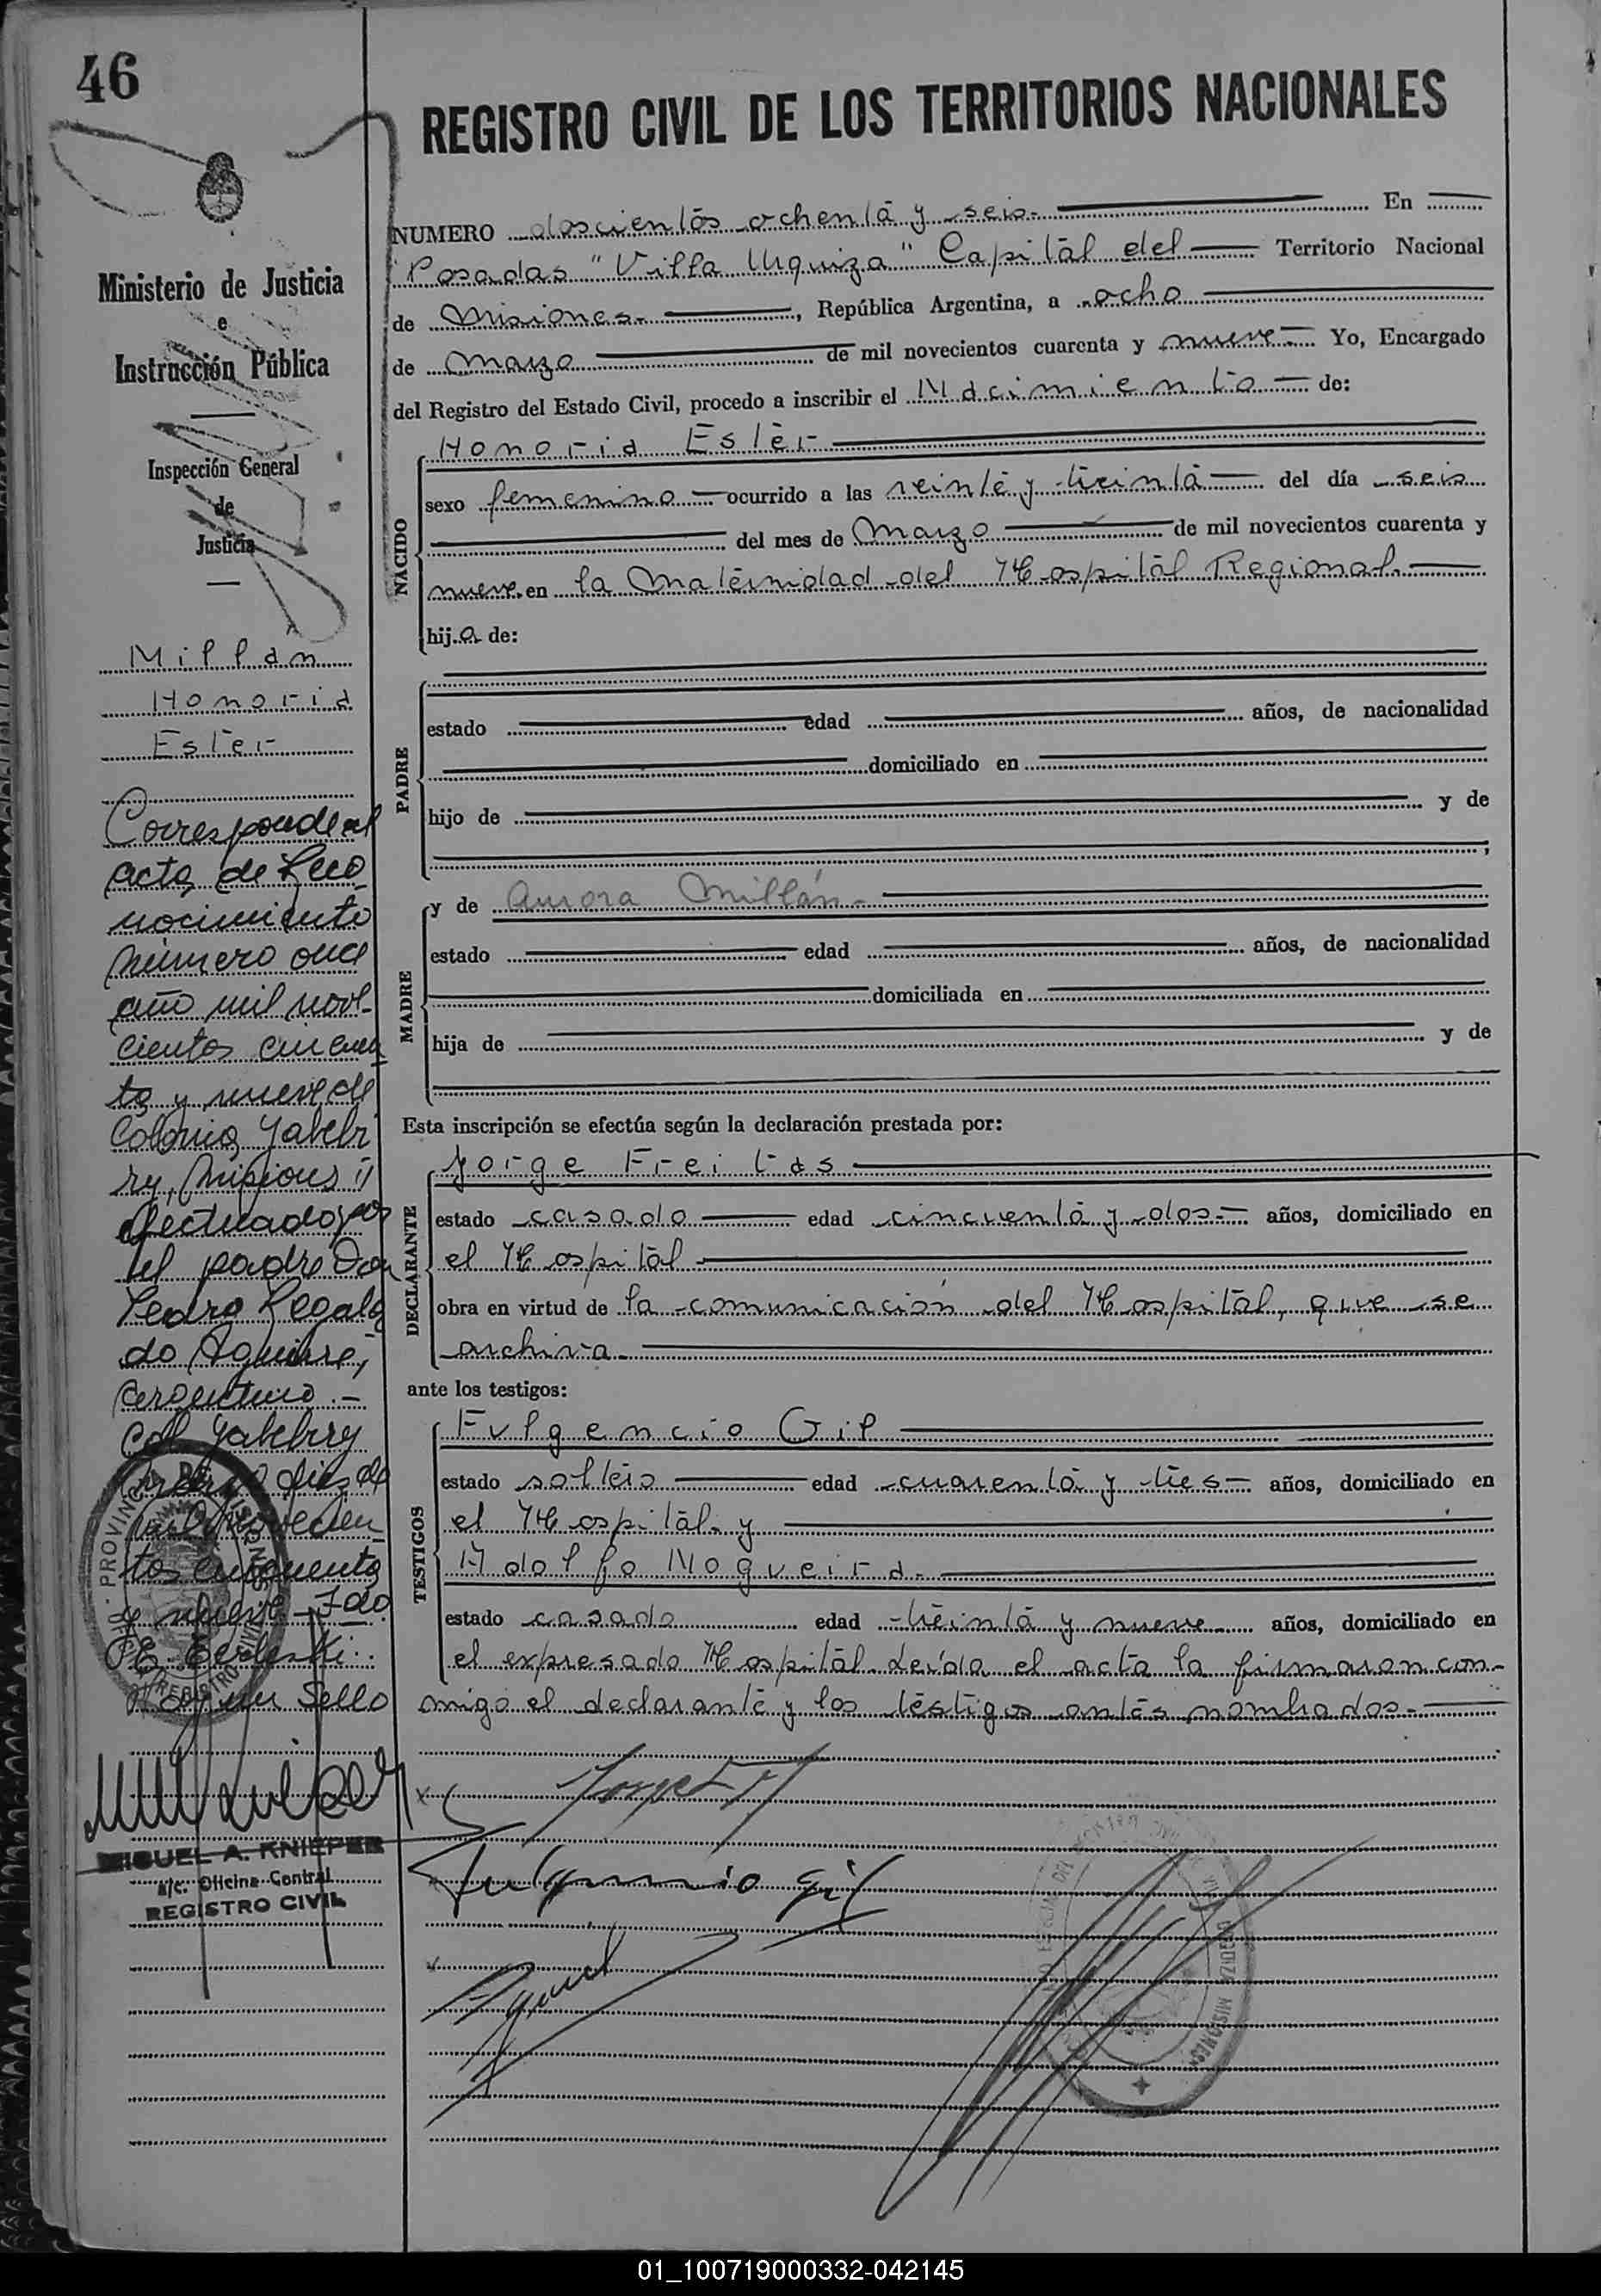 46
REGISTRO CIVIL DE LOS TERRITORIOS NACIONALES
Ministerio de Justicia
e
Instrucción Pública
Inspección General
de
Justicia
Millán
Honoria
Ester
Corresponde al
acta de Reco
nocimiento
número once
año mil nove-
cientos cincuen
ta y nueve de
Colonia Yabebi
ry, Misiones
efectuado por
el padre Don
Pedro Regala
do Aguirre,
argentino.-
Col. Yabebiry
diez de
mil novecien
tos cincuenta
y nueve - Fdo
Hay un Sello
MIGUEL A. KNIEPER
a/c. Oficina Central
REGISTRO CIVIL
NUMERO doscientos ochenta y seis.- En
Posadas "Villa Urquiza" Capital del Territorio Nacional
de Misiones.- , República Argentina, a ocho
de marzo de mil novecientos cuarenta y nueve.- Yo, Encargado
del Registro del Estado Civil, procedo a inscribir el Nacimiento de:
NACIDO
Honoria Ester
sexo femenino ocurrido a las veinte y treinta del día seis
del mes de Marzo de mil novecientos cuarenta y
nueve. en la Maternidad del Hospital Regional.
hija de:
PADRE
estado edad años, de nacionalidad
domiciliado en
hijo de y de
,
MADRE
y de Aurora Millán.-
estado edad años, de nacionalidad
domiciliada en
hija de y de
Esta inscripción se efectúa según la declaración prestada por:
DECLARANTE
Jorge Freitas
estado casado edad cincuenta y dos.- años, domiciliado en
el Hospital
obra en virtud de la comunicación del Hospital, que se
archiva.
ante los testigos:
TESTIGOS
Fulgencio Gil
estado soltero edad cuarenta y tres años, domiciliado en
el Hospital. y
Adolfo Nogueira.
estado casado edad treinta y nueve años, domiciliado en
el expresado Hospital. Leída el acta la firmaron con-
migo el declarante y los testigos antes nombrados.-
Fulgencio Gil
01_100719000332-042145